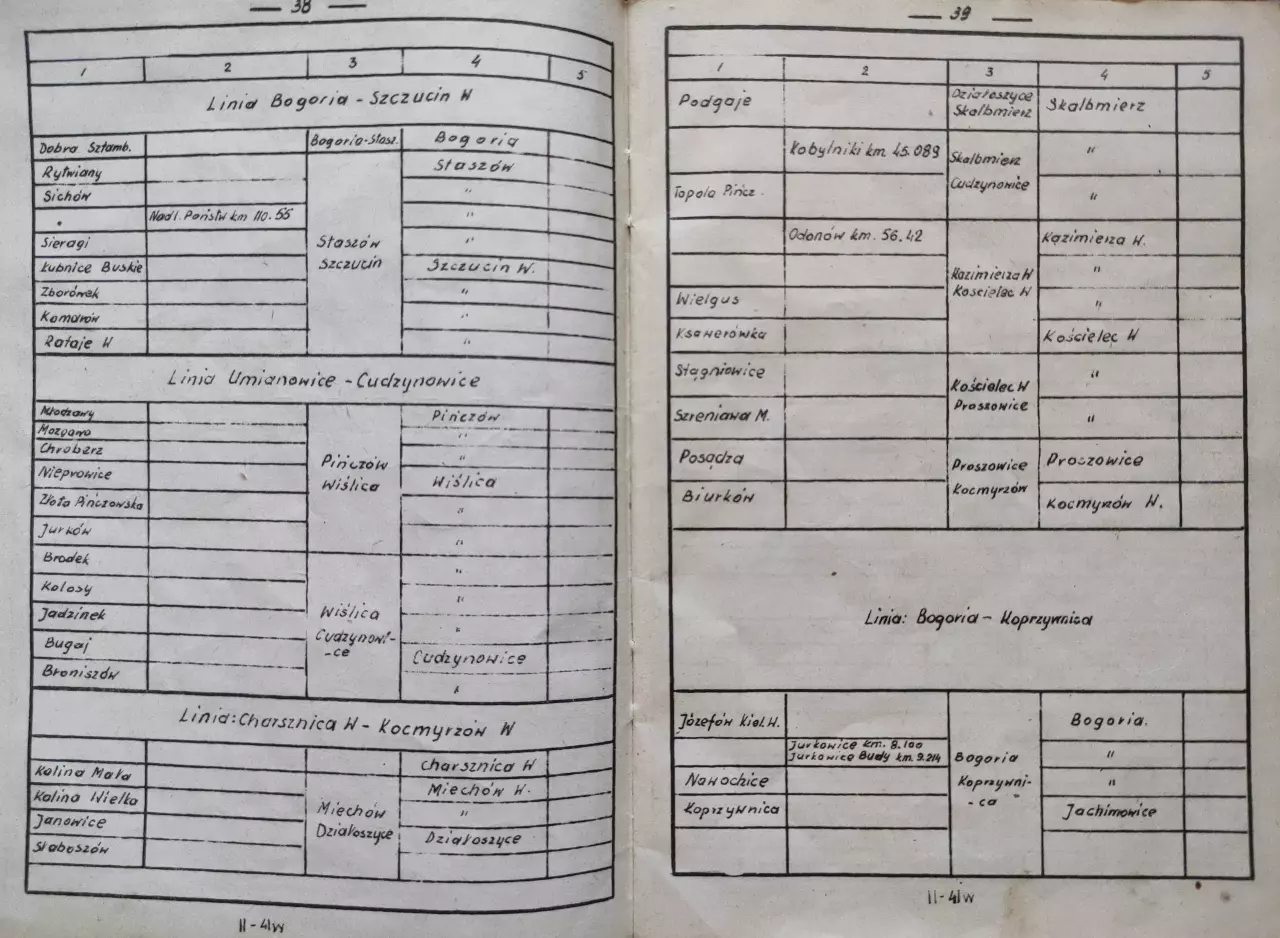 — 38 —
1 2 3 4 5
Linia Bogoria - Szczucin W
Dobra Sztamb. Bogoria-Stasz. Bogoria
Rytwiany Staszów
Sichów "
" Nadl. Państw km 110.55 "
Sieragi Staszów "
Łubnice Buskie Szczucin Szczucin W.
Zborówek "
Komorów "
Rataje W "
Linia Umianowice - Cudzynowice
Młodzawy Pińczów
Mozgawa "
Chroberz "
Nieprowice Pińczów Wiślica
Złota Pińczowska Wiślica "
Jurków "
Brodek "
Kolosy "
Jadzinek Wiślica "
Bugaj Cudzynowi- Cudzynowice
Broniszów -ce "
Linia: Charsznica W - Kocmyrzów W
Charsznica W
Kalina Mała Miechów W.
Kalina Wielka Miechów "
Janowice Działoszyce Działoszyce
Słaboszów
II-41w
— 39 —
1 2 3 4 5
Podgaje Działoszyce Skalbmierz
Skalbmierz
Kobylniki km. 45.089 Skalbmierz "
Topola Pińcz. Cudzynowice "
Odonów km. 56.42 Kazimierza W.
Kazimierza W "
Wielgus Kościelec W "
Ksawerówka Kościelec W
Stągniowice Kościelec W "
Szreniawa M. Proszowice "
Posądza Proszowice Proszowice
Biurków Kocmyrzów Kocmyrzów W.
Linia: Bogoria - Koprzywnica
Józefów Kiel.W. Bogoria.
Jurkowice km. 8.100
Jurkowice Budy km. 9.214 Bogoria "
Nawochice Koprzywni- "
Koprzywnica -ca Jachimowice
II-41w